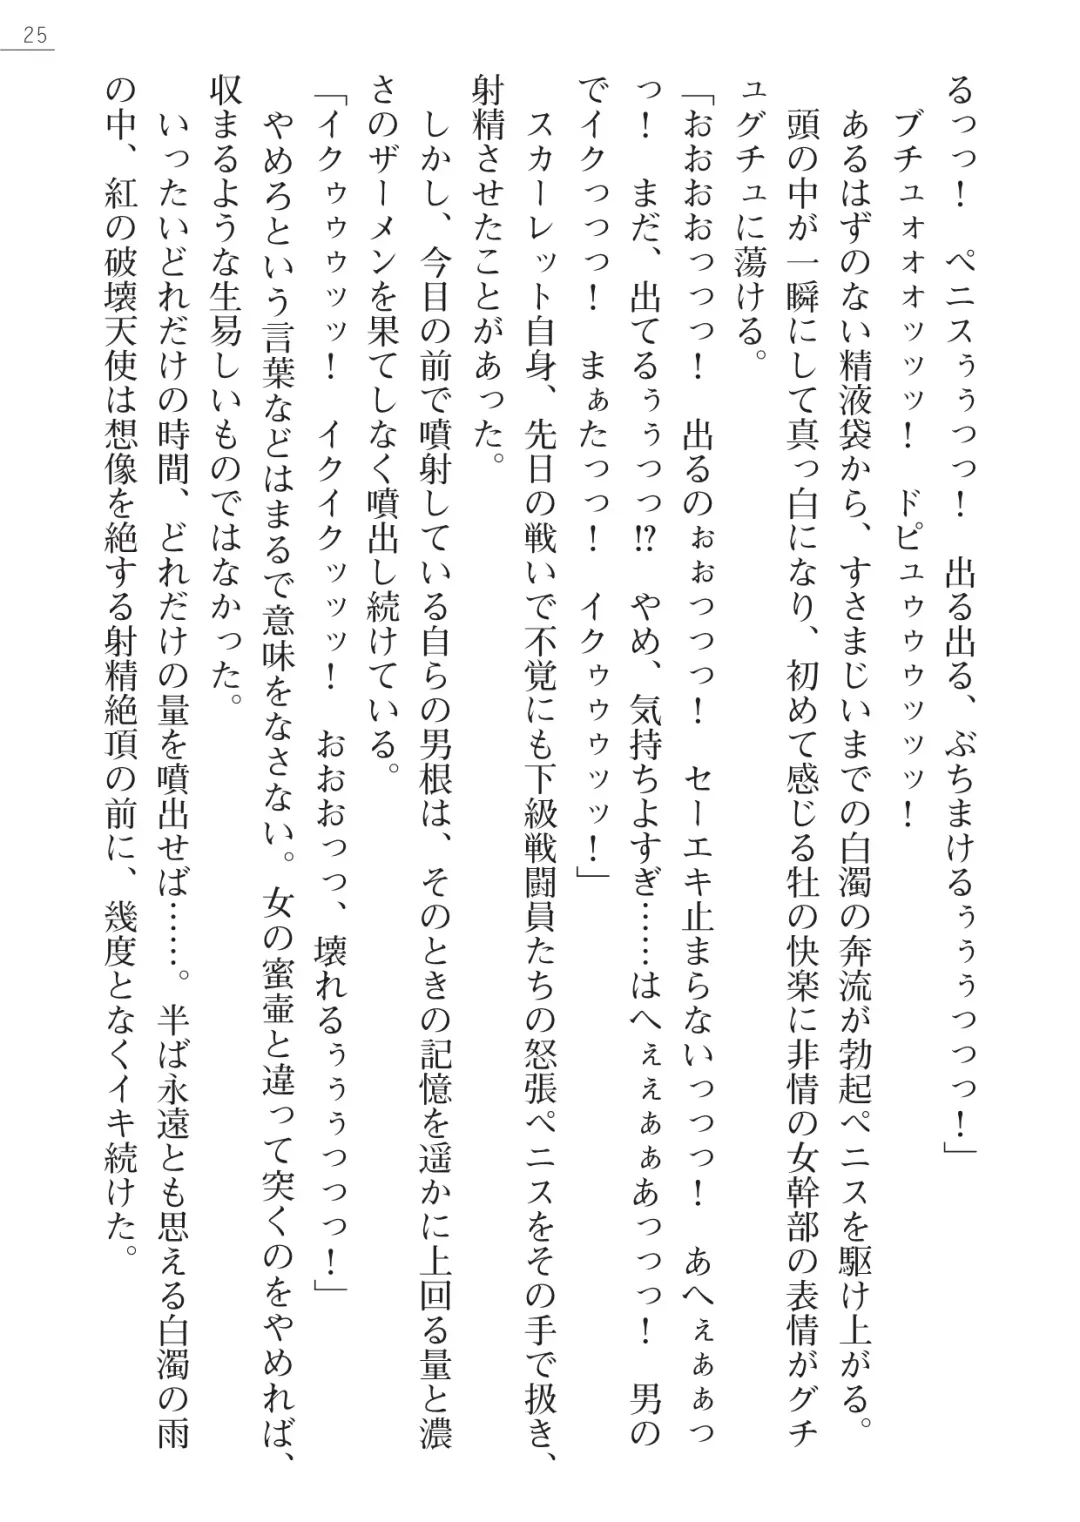 25
るっっ！　ペニスぅぅっっ！　出る出る、ぶちまけるぅぅぅっっっ！」
　ブチュォォォッッッ！　ドピュゥゥゥッッッ！
　あるはずのない精液袋から、すさまじいまでの白濁の奔流が勃起ペニスを駆け上がる。
　頭の中が一瞬にして真っ白になり、初めて感じる牡の快楽に非情の女幹部の表情がグチ
ュグチュに蕩ける。
「おおおおっっっ！　出るのぉぉっっっ！　セーエキ止まらないっっっ！　あへぇぁぁっ
っ！　まだ、出てるぅぅっっ⁉　やめ、気持ちよすぎ……はへぇぇぁぁあっっっ！　男の
でイクっっっ！　まぁたっっ！　イクゥゥゥッッ！」
　スカーレット自身、先日の戦いで不覚にも下級戦闘員たちの怒張ペニスをその手で扱き、
射精させたことがあった。
　しかし、今目の前で噴射している自らの男根は、そのときの記憶を遥かに上回る量と濃
さのザーメンを果てしなく噴出し続けている。
「イクゥゥゥッッ！　イクイクッッッ！　おおおっっ、壊れるぅぅぅっっっ！」
　やめろという言葉などはまるで意味をなさない。女の蜜壷と違って突くのをやめれば、
収まるような生易しいものではなかった。
　いったいどれだけの時間、どれだけの量を噴出せば……。半ば永遠とも思える白濁の雨
の中、紅の破壊天使は想像を絶する射精絶頂の前に、幾度となくイキ続けた。